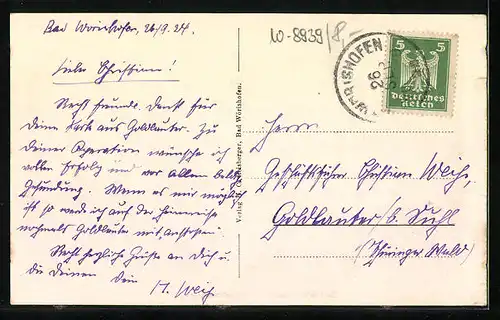 Bad Wörishofen, 26/9. 24.
Lieber Christian!
Recht freundl. Dank für
Deine Karte aus Goldlauter. Zu
Deiner Operation wünsche ich
vollen Erfolg und vor allem baldige
Gesundung. Wenn es mir möglich
ist so werde ich auf der Heimreise
nochmals Goldlauter mit anstoßen.
Recht herzliche Grüße an Dich u.
die Deinen Dein
H. Weih
Bad Wörishofen.
10-8939/8,-
WÖRISHOFEN
26.
5 5
Deutsches
Reich
Herrn
Geschäftsführer Christian Weih,
Goldlauter b. Suhl
(Thüringer Wald)